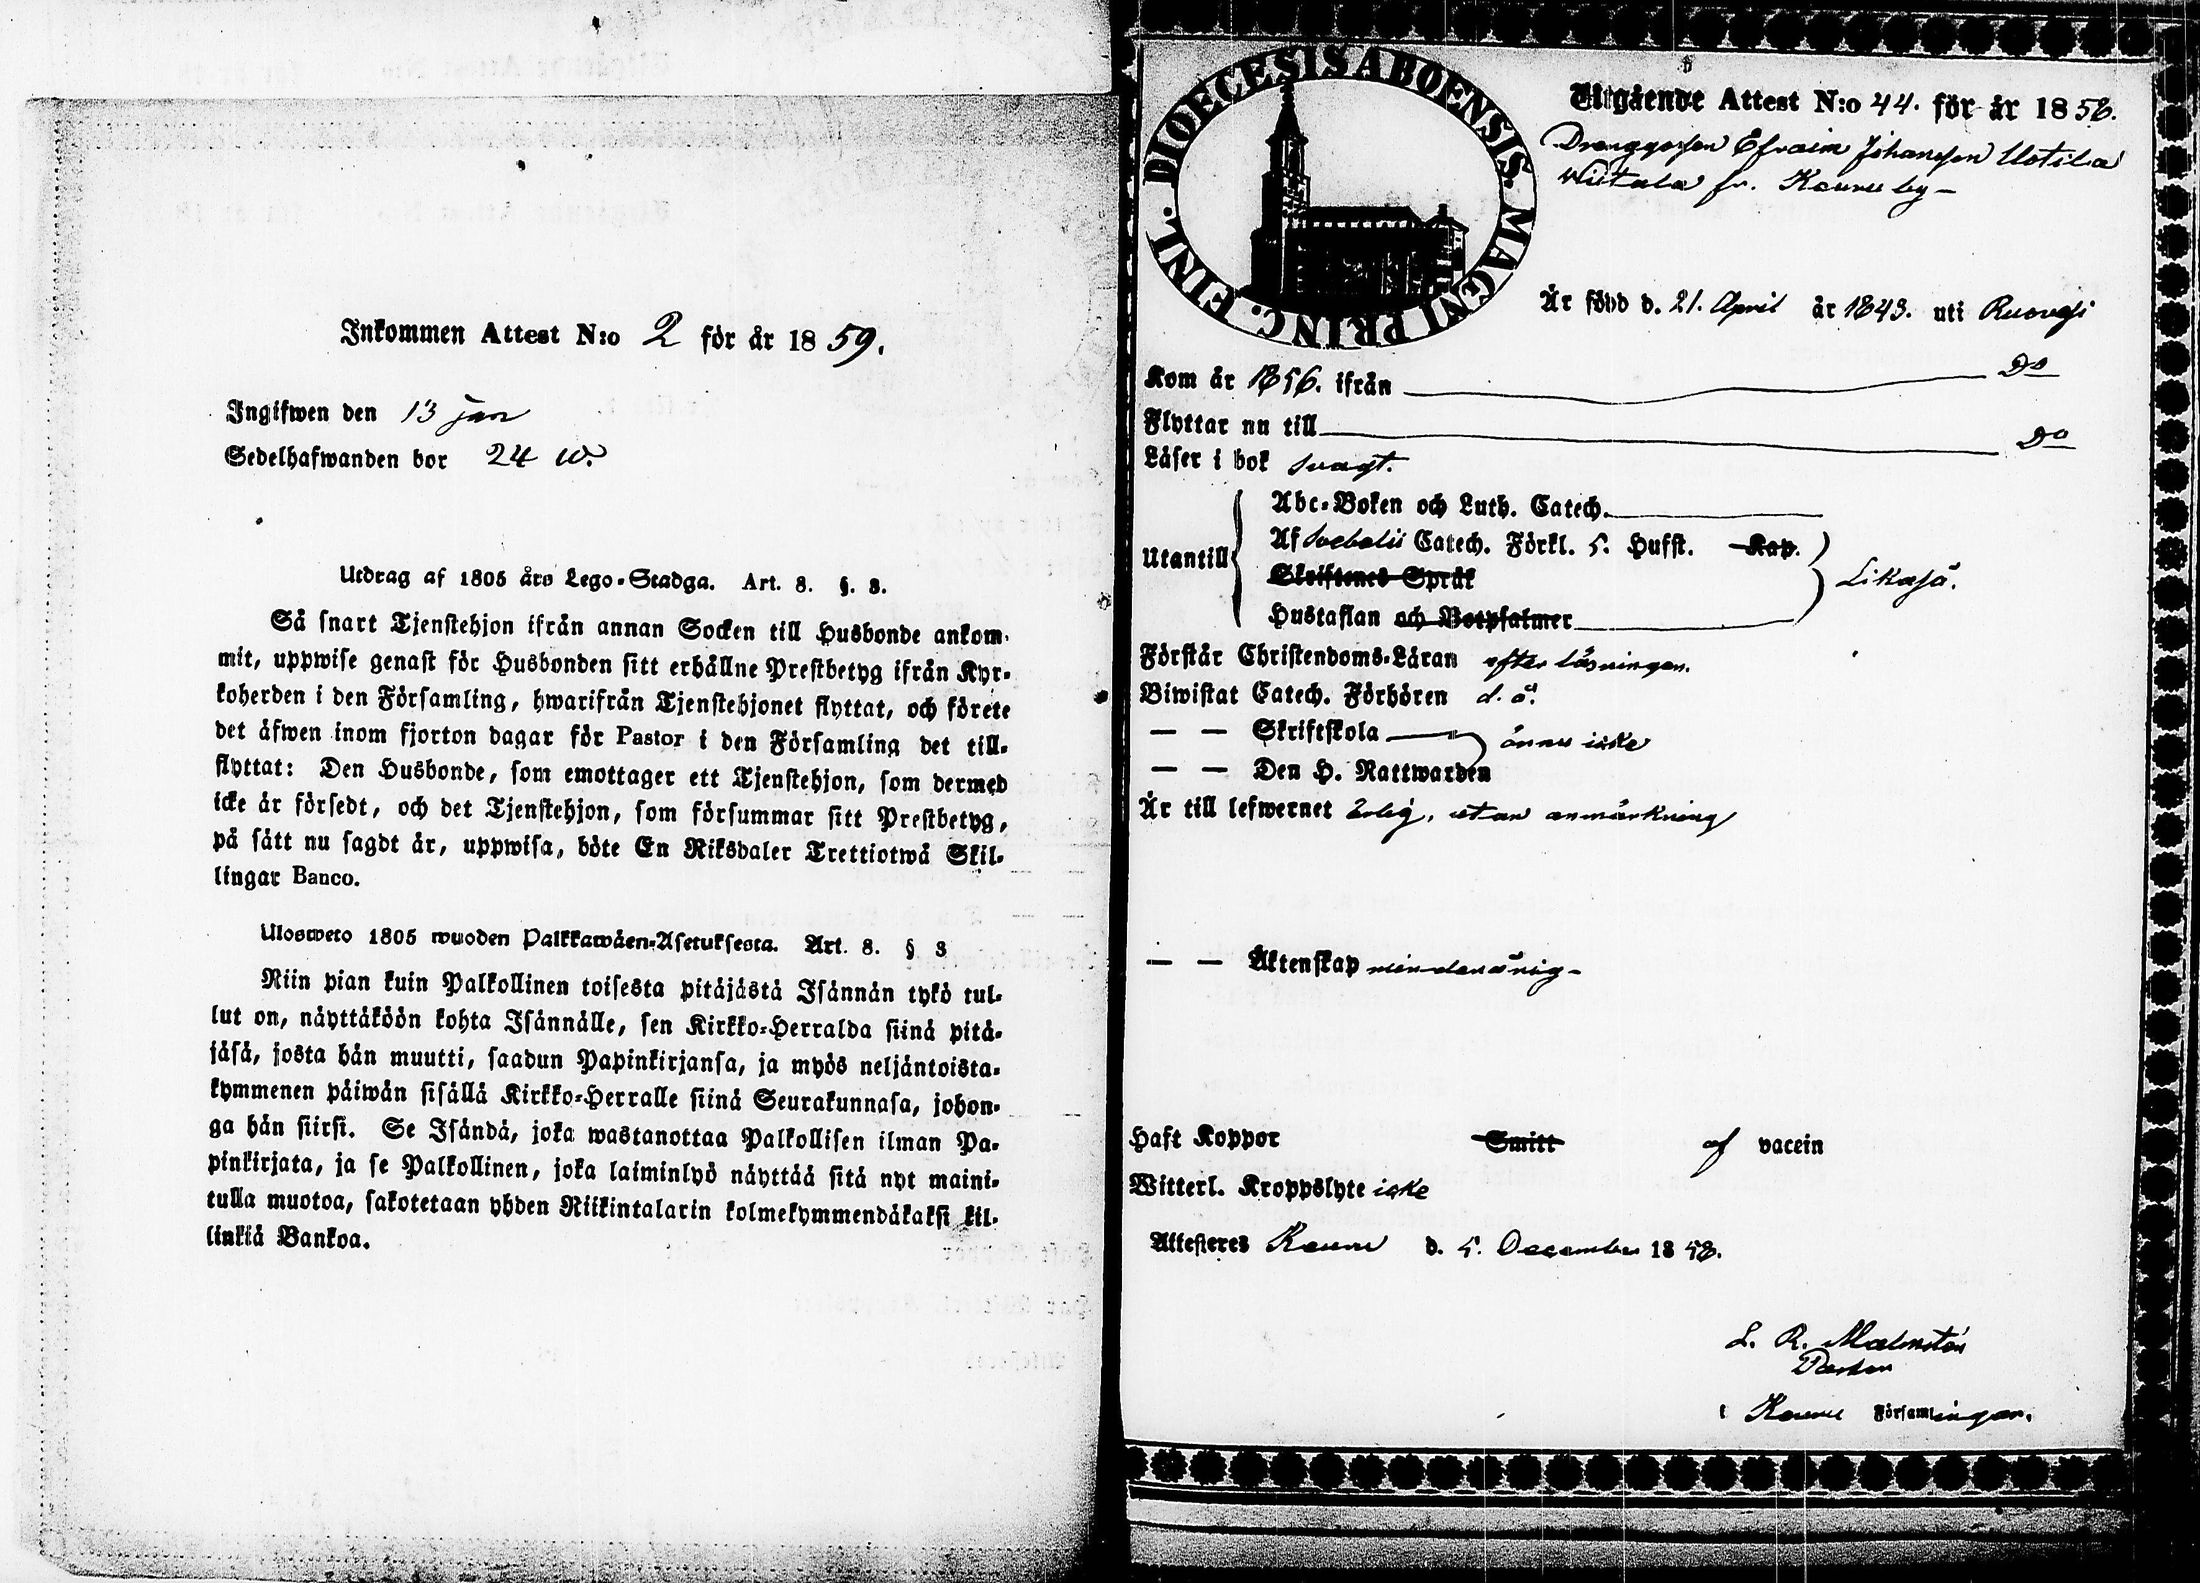 Inkommen Attest N:o 2 för år 1859.
Ingifwen den 13 jan
Sedelhafwanden bor 24 w.
Utdrag af 1805 års Lego-Stadga. Art. 8. §. 3.
Så snart Tjenstehjon ifrån annan Socken till Husbonde ankom-
mit, uppwise genast för Husbonden sitt erhållne Prestbetyg ifrån Kyr-
koherden i den Församling, hwarifrån Tjenstehjonet flyttat, och förete
det äfwen inom fjorton dagar för Pastor i den Församling det till-
flyttat: Den Husbonde, som emottager ett Tjenstehjon, som dermed
icke är försedt, och det Tjenstehjon, som försummar sitt Prestbetyg,
på sätt nu sagdt är, uppwisa, böte En Riksdaler Trettiotwå Skil-
lingar Banco.
Ulosweto 1805 wuoden Palkkawäen-Asetuksesta. Art. 8. § 3
Niin pian kuin Palkollinen toisesta pitäjästä Isännän tykö tul-
lut on, näyttäköön kohta Isännälle, sen Kirkko-Herralda siinä pitä-
jäsä, josta hän muutti, saadun Papinkirjansa, ja myös neljäntoista-
kymmenen päiwän sisällä Kirkko-Herralle siinä Seurakunnasa, johon-
ga hän siirsi. Se Isändä, joka wastanottaa Palkollisen ilman Pa-
pinkirjata, ja se Palkollinen, joka laiminlyö näyttää sitä nyt maini-
tulla muotoa, sakotetaan yhden Riikintalarin kolmekymmendäkaksi kil-
linkiä Bankoa.
DIOECESIS ABOENSIS. MAGNI PRINC. FINL.
Utgående Attest N:o 44. för år 1858.
Drenggossen Efraim Johansson Uotila
Wiitala fr. Keuru by-
Är född d. 21. April år 1843. uti Ruovesi
Kom år 1856. ifrån Do
Flyttar nu till Do
Läser i bok svagt.
Utantill
Abc-Boken och Luth. Catech.
Af Svebelii Catech. Förkl. 5. Hufst. Kap.
Skriftenes Språk
Hustaflan och Botpsalmer
Likaså.
Förstår Christendoms-Läran efter läsningen.
Biwistat Catech. Förhören d. å.
— — Skriftskola ännu icke
— — Den H. Nattwarden
Är till lefwernet ärlig, utan anmärkning
— — Äktenskap minderårig-
Haft Koppor Smitt af vacein
Witterl. Kroppslyte icke
Attesteres Keuru d. 5. December 1858.
L. R. Malmstén
Pastor
i Keuru Församlingar.